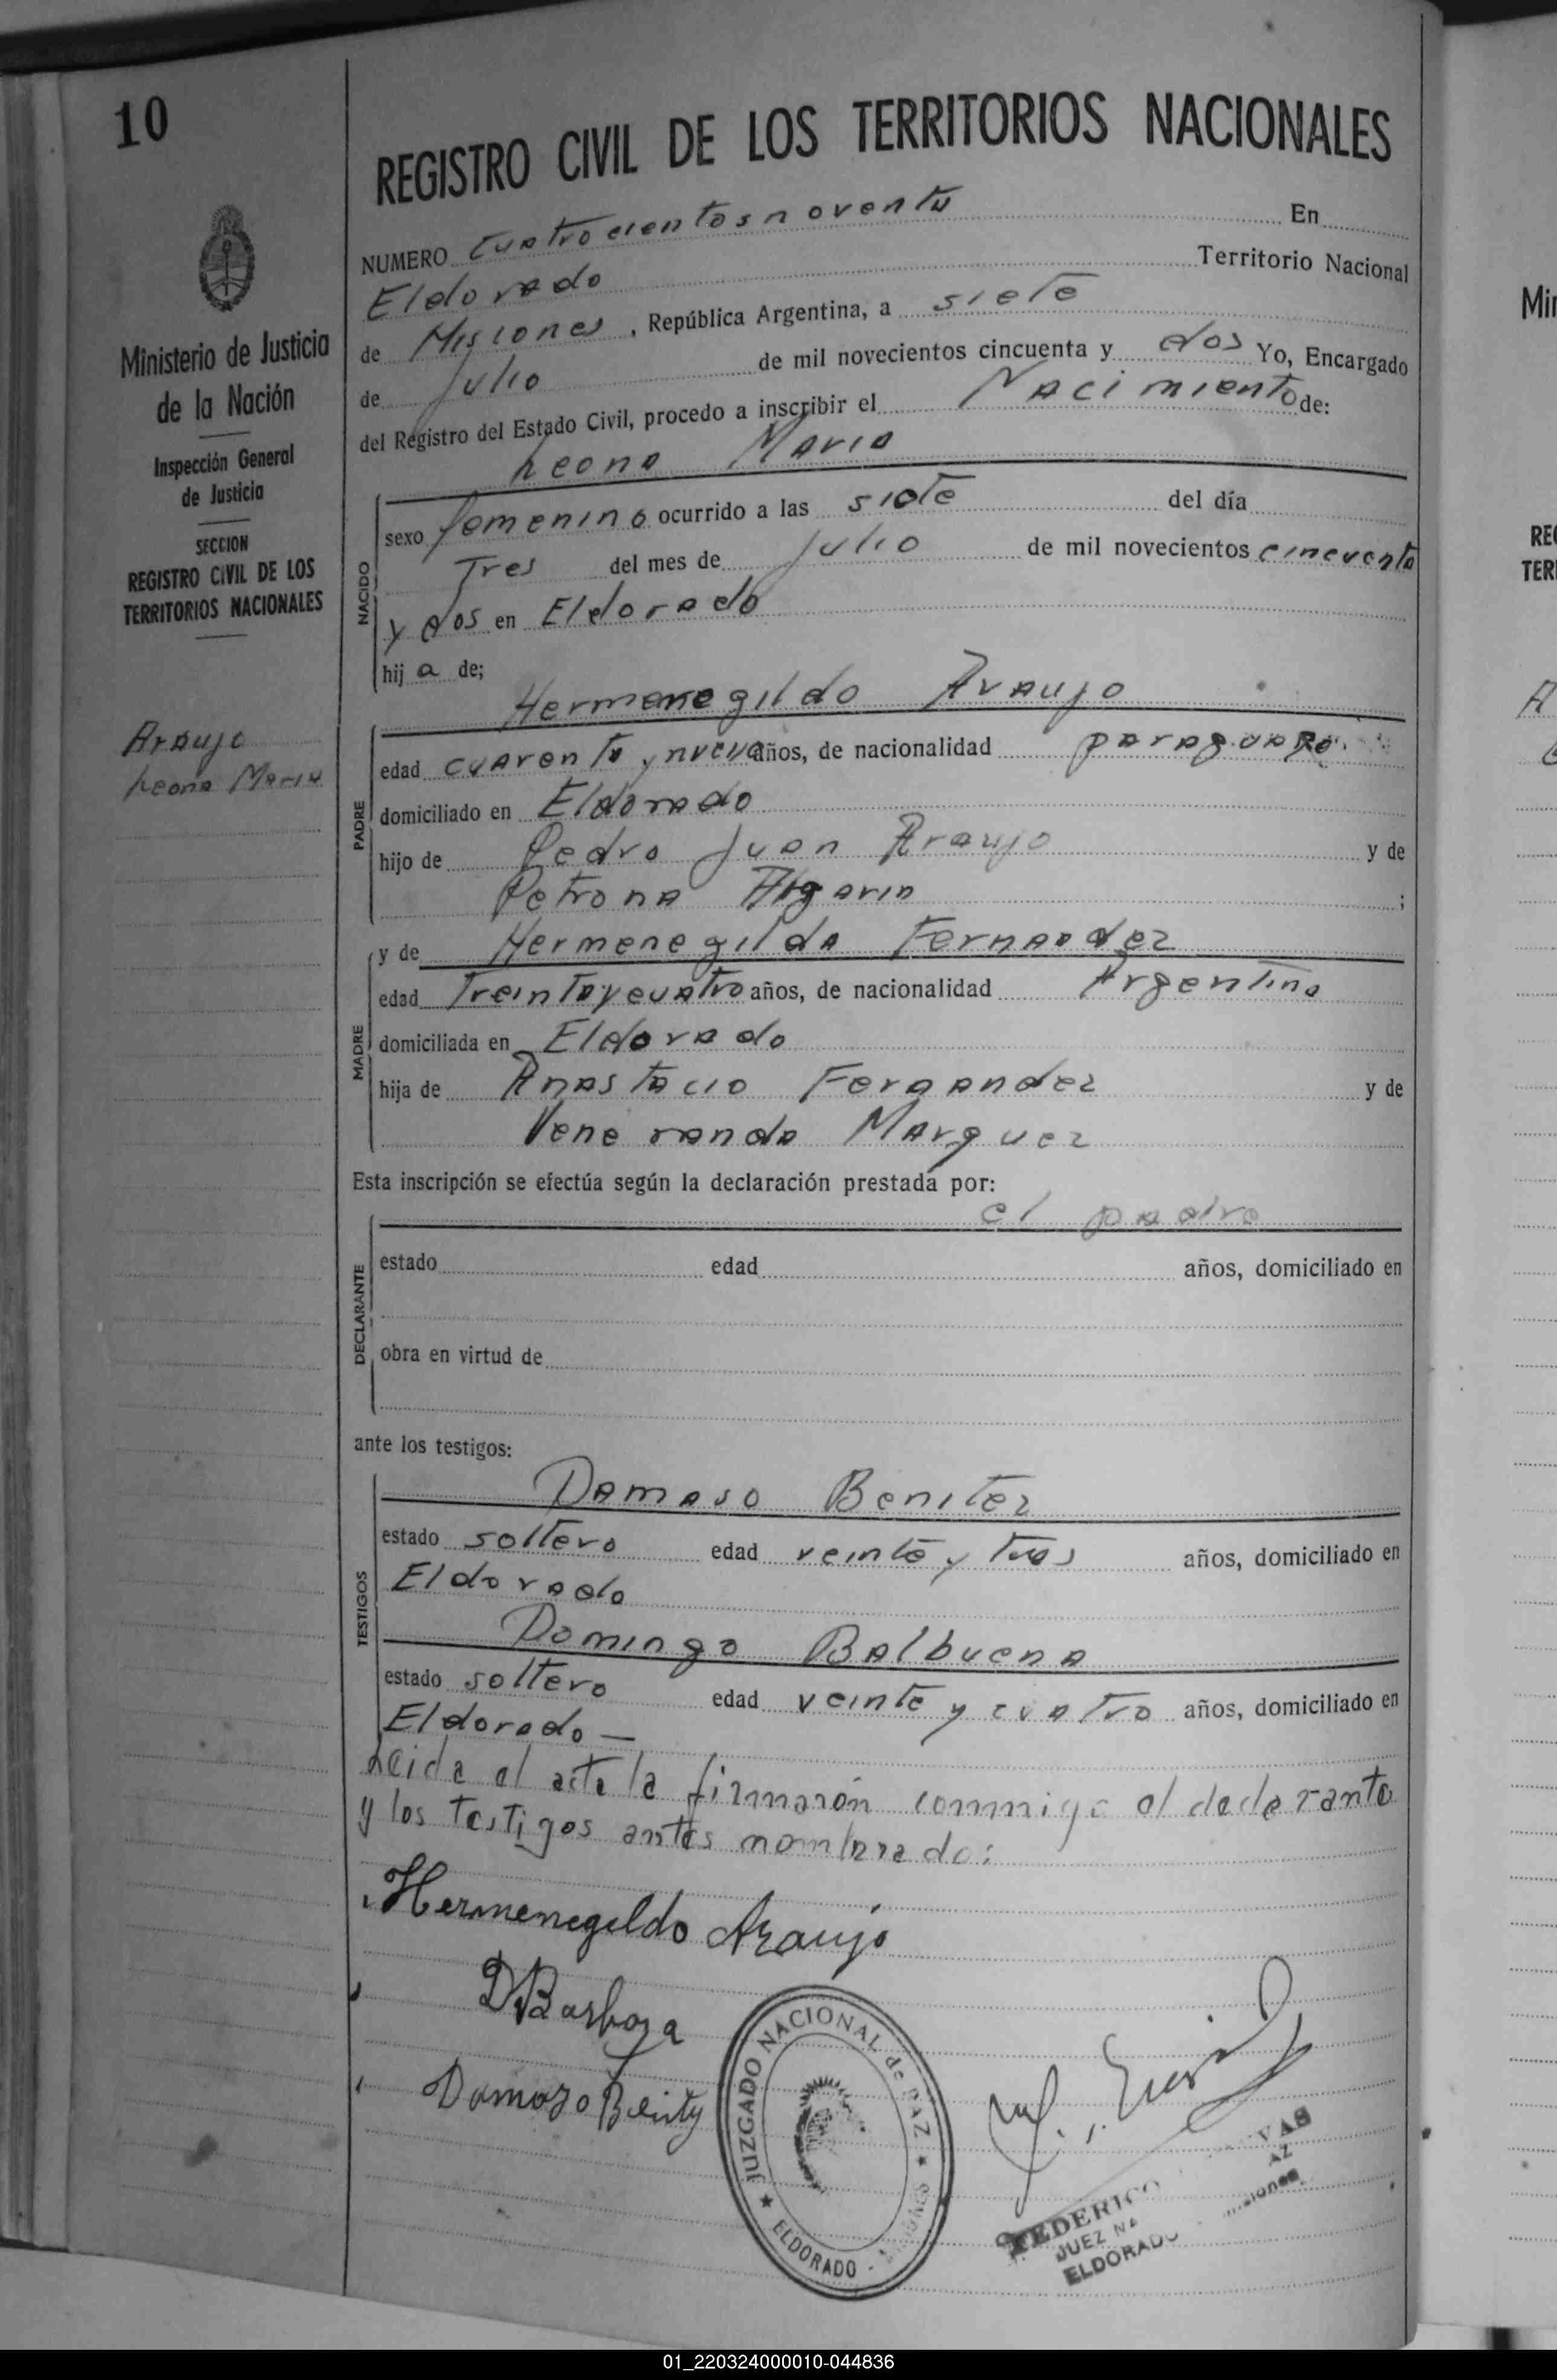 10
REGISTRO CIVIL DE LOS TERRITORIOS NACIONALES
Ministerio de Justicia
de la Nación
Inspección General
de Justicia
SECCION
REGISTRO CIVIL DE LOS
TERRITORIOS NACIONALES
Araujo
Leona Maria
NUMERO Cuatrocientos noventa En
Eldorado Territorio Nacional
de Misiones, República Argentina, a siete
de Julio de mil novecientos cincuenta y dos Yo, Encargado
del Registro del Estado Civil, procedo a inscribir el Nacimiento de:
Leona Maria
NACIDO
sexo femenino ocurrido a las siete del día
Tres del mes de Julio de mil novecientos cincuenta
y dos en Eldorado
hij a de;
Hermenegildo Araujo
PADRE
edad cuarenta y nueve años, de nacionalidad
domiciliado en Eldorado
hijo de Pedro Juan Araujo y de
Petrona ;
y de Hermenegilda Fernandez
MADRE
edad Treinta y cuatro años, de nacionalidad Argentina
domiciliada en Eldorado
hija de Anastacio Fernandez y de
Veneranda Marquez
Esta inscripción se efectúa según la declaración prestada por:
el padre
DECLARANTE
estado edad años, domiciliado en
obra en virtud de
ante los testigos:
TESTIGOS
Damaso Benitez
estado soltero edad veinte y tres años, domiciliado en
Eldorado
Domingo Balbuena
estado soltero edad veinte y cuatro años, domiciliado en
Eldorado —
Leida el acta la firmarón conmigo el
y los testigos antes nombrado:
Hermenegildo Araujo
JUZGADO NACIONAL de PAZ
ELDORADO
FEDERICO
JUEZ
ELDORADO
01_220324000010-044836